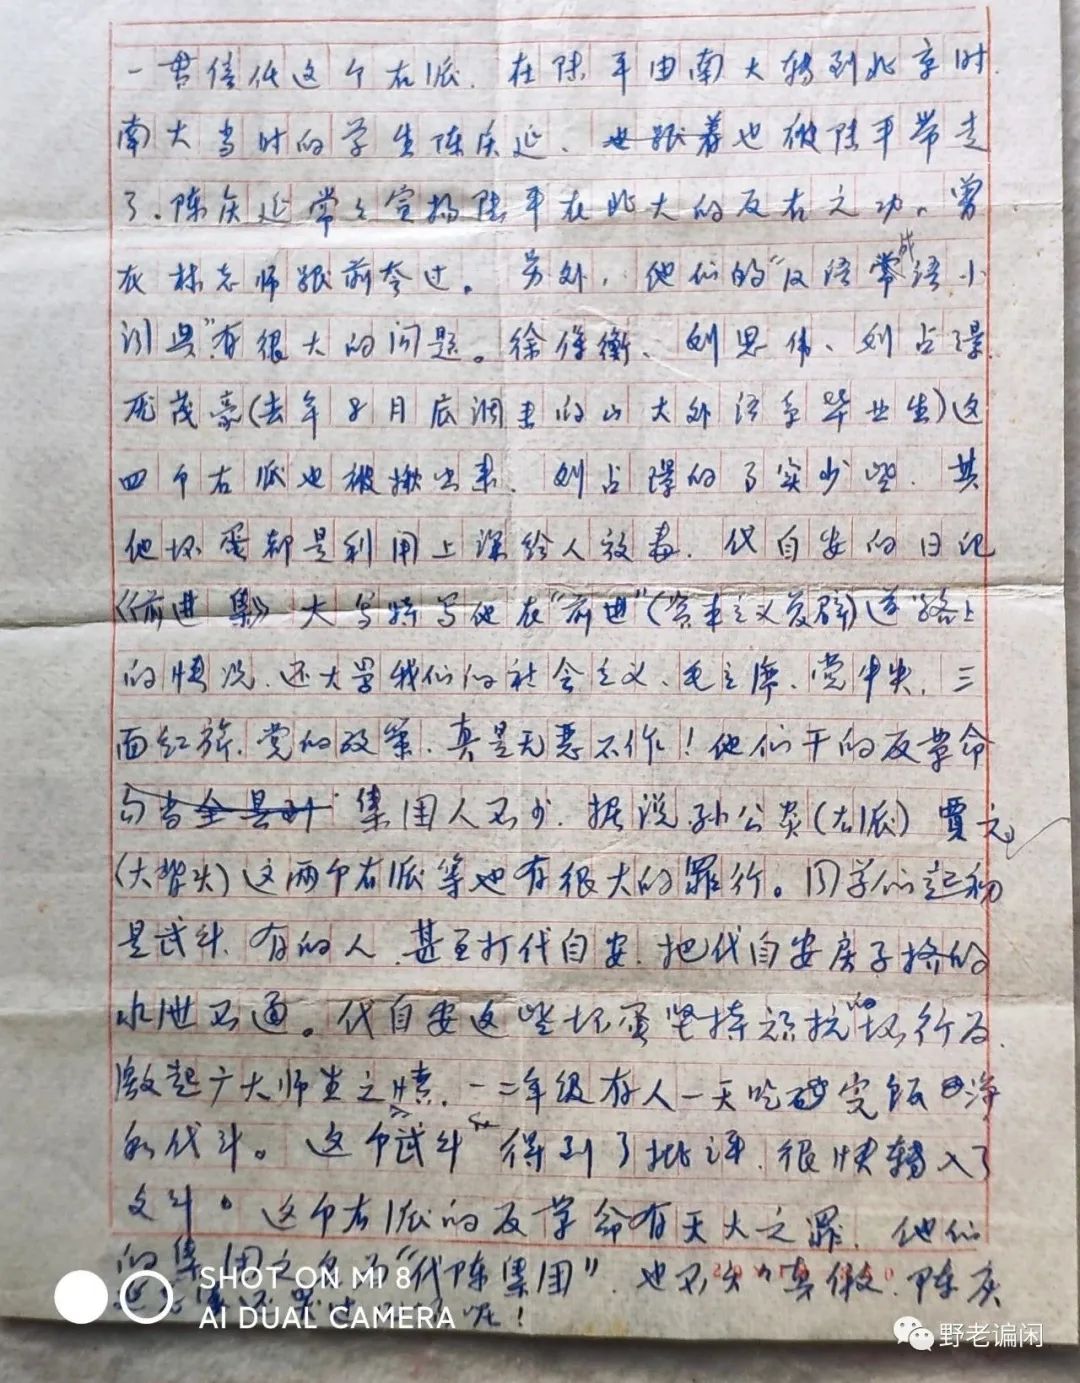 一贯信任这个右派．在陆平由南大转到北京时．
南大当时的学生陈庆延、也跟着也被陆平带走
了．陈庆延常々宣扬陆平在北大的反右之功．曾
在林老师跟前夸过。另外，他们的“汉语常成语小
词典”有很大的问题。徐保衡、刘思伟、刘占璟
茂豪(去年8月底调来的山大外语系毕业生)这
四个右派也被揪出来．刘占璟的了实少些．其
他坏蛋都是利用上课给人放毒．代自安的日记
《前进集》大写特写他在“前进”(资本主义复辟)道路上
的情况．还大骂我们的社会主义、毛主席、党中央、三
面红旗．党的政策．真是无恶不作！他们干的反革命
集团人不少．据说孙公炎(右派)贾元
(大帮头)这两个右派等也有很大的罪行。同学们起初
是武斗．有的人．甚至打代自安．把代自安房子挤的
水泄不通。代自安这些坏蛋坚持顽抗的坏行为．
激起广大师生之愤．一二年级有人一天吃完饭
和代斗。这个武斗得到了批评．很快转入了
文斗。这个右派的反革命有天大之罪．他们
的集团之名为“代陈集团”．也不久．陈庆
延 呢！
SHOT ON MI 8
AI DUAL CAMERA
野老谝闲